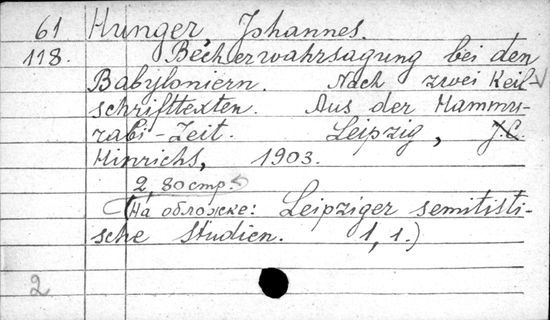 61 Hunger, Johannes.
118. Becherwahrsagung bei den
Babyloniern. Nach zwei Keil-
schrifttexten. Aus der Hammu-
rabi-Zeit. Leipzig, J.C.
Hinrichs, 1903.
2, 80 стр.
(На обложке: Leipziger semitisti-
sche Studien. 1, 1.)
2